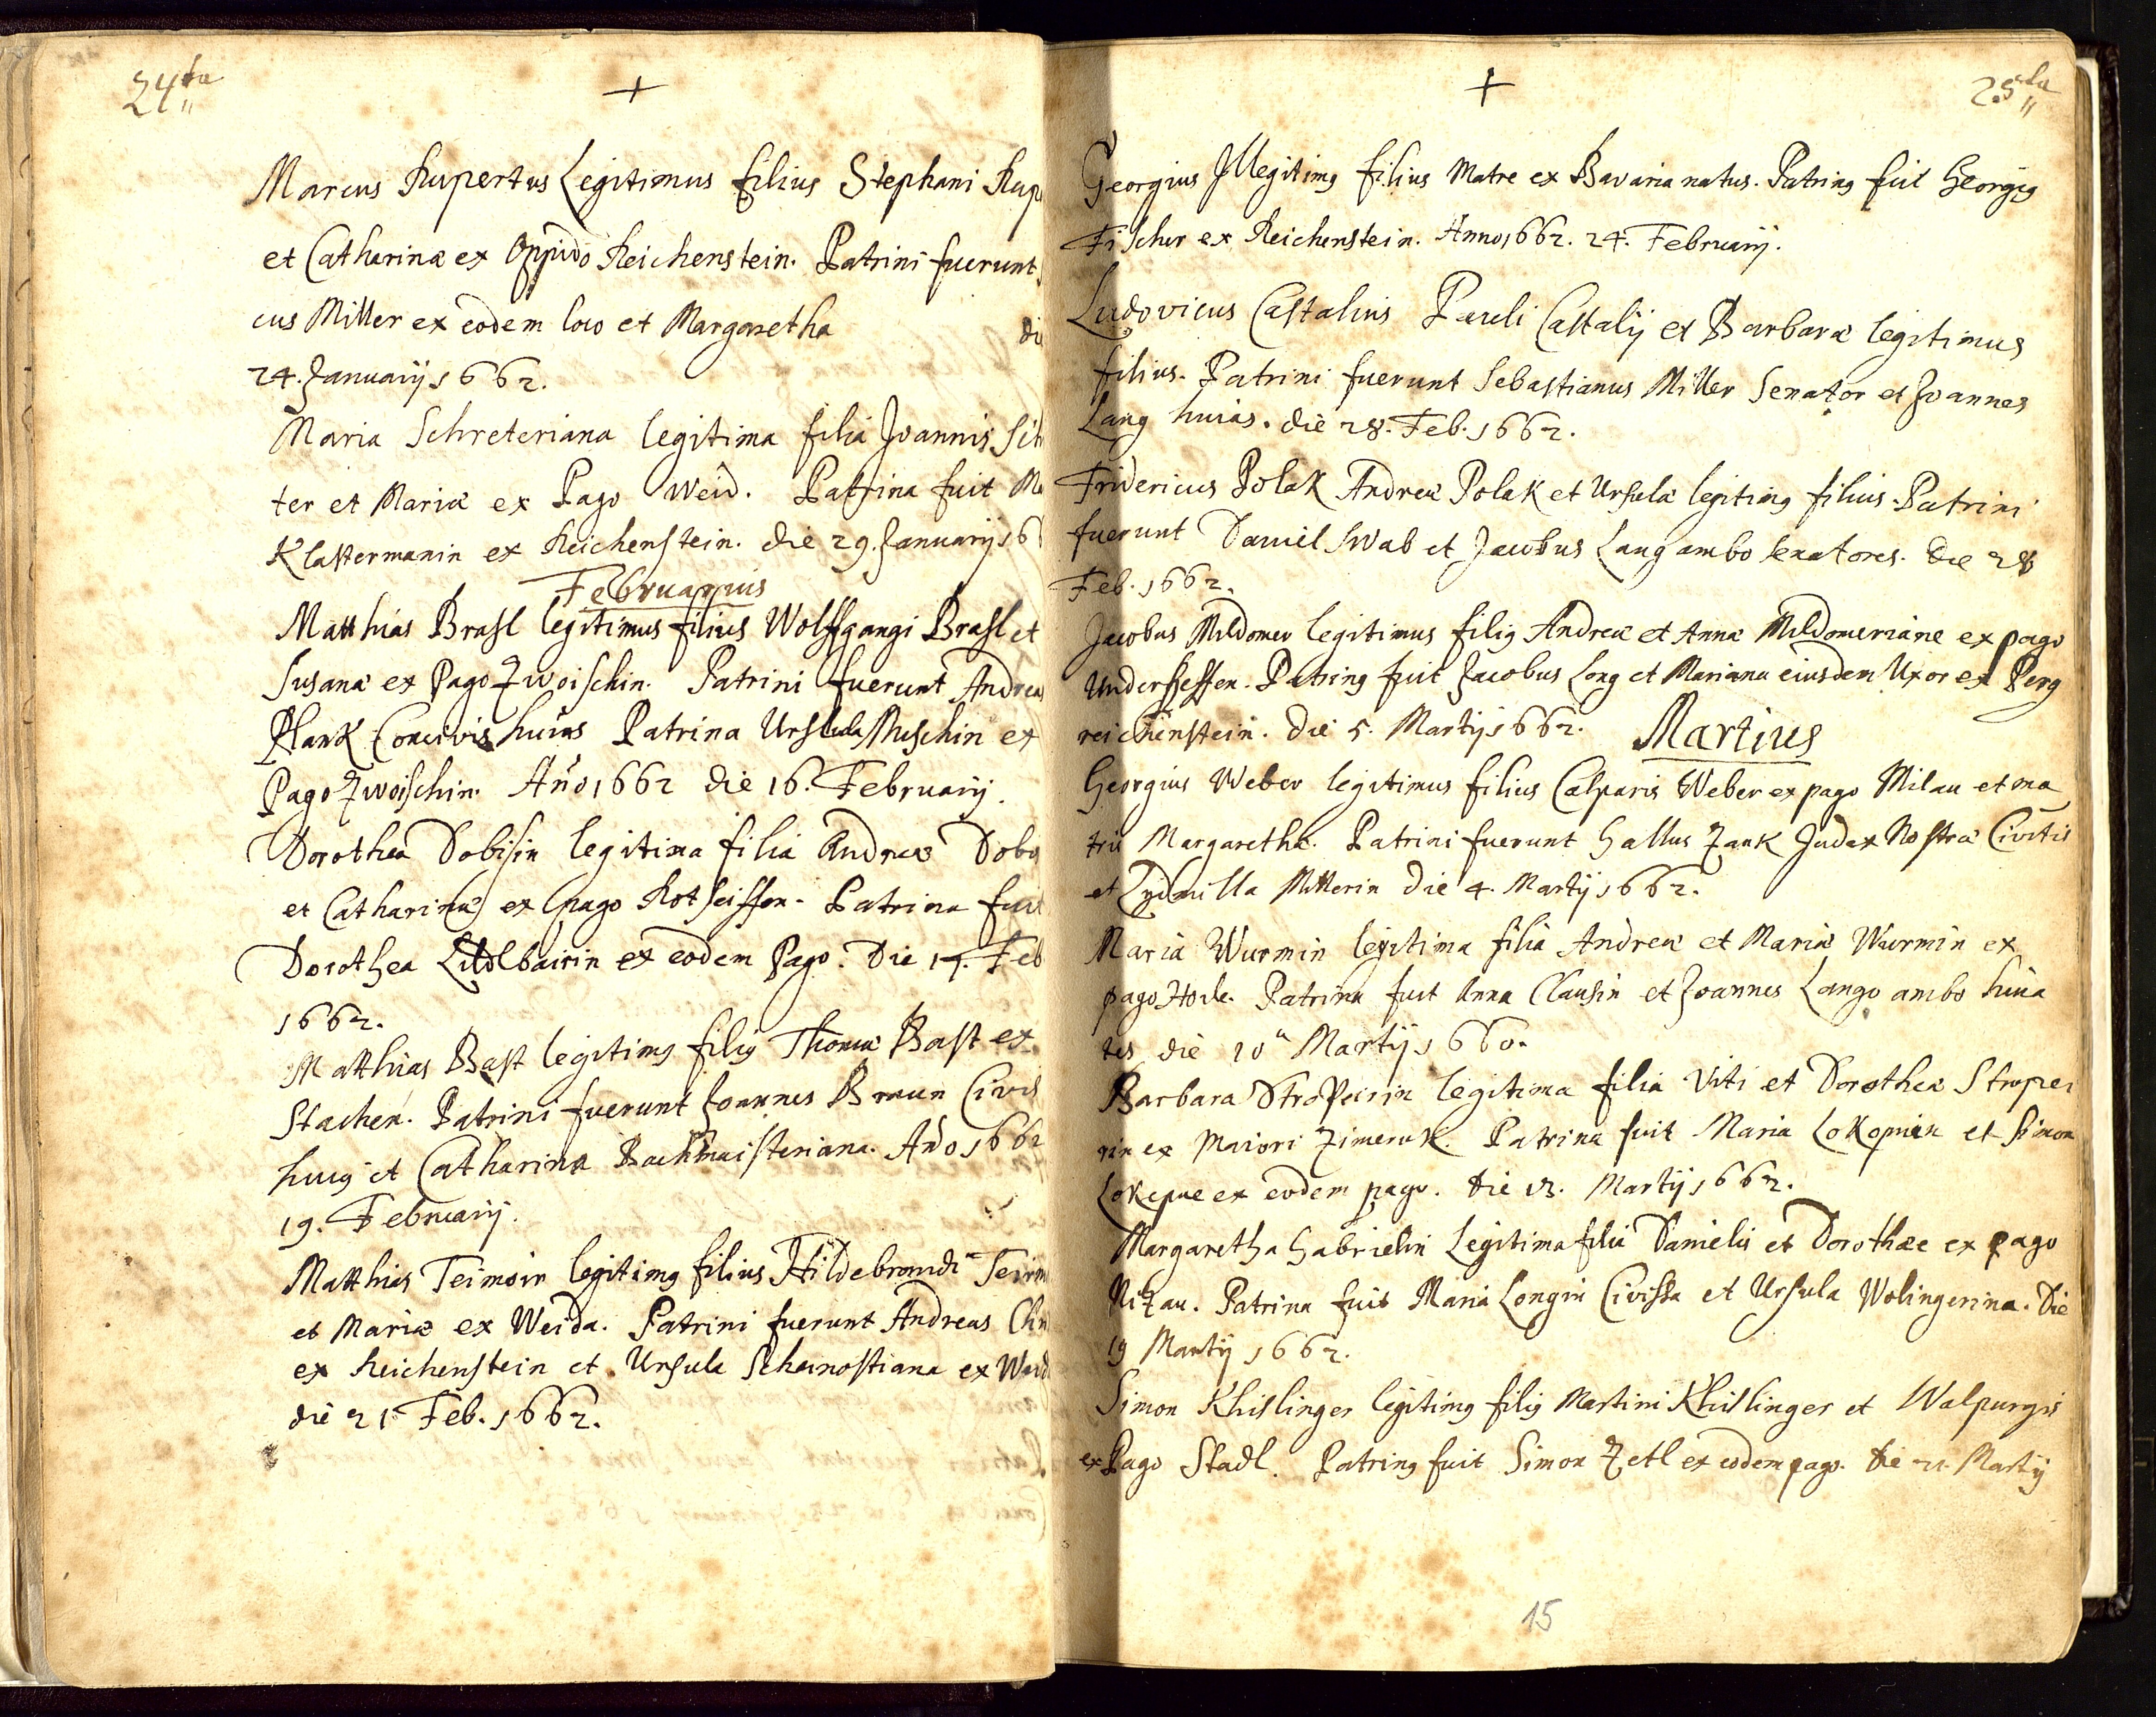 24ta
+
Marcus Rupertus Legitimus filius Stephani Rup
et Catharinæ ex Oppido Reichenstein. Patrini fuerunt
cus Miller ex eodem loco et Margaretha di
24. Januarij 1662.
Maria Schreteriana legitima filia Joannis Sch
ter et Mariæ ex Pago Weid. Patrina fuit Ma
Klastermanin ex Reichenstein. die 29. Januarij 16
Februarius
Matthias Brasl legitimus filius Wolffgangi Brasl et
Susanæ ex Pago Zwoischin. Patrini fuerunt Andreas
Plank Concivis huias Patrina Ursula Muschin ex
Pago Zwoischin. Año 1662 die 16. Februarij.
Dorothea Dobisin legitima filia Andreæ Dobis
et Catharinæ ex pago Rotseissen. Patrina fuit
Dorothea Lidlbairin ex eodem Pago. Die 17. Feb
1662.
Matthias Bast legitimg filig Thomæ Bast ex
Stachen. Patrini fuerunt Joannes Braun Civis
huig et Catharina Bachmaisteriana. Año 1662
19. Februarij.
Matthias Teimoir legitimg filius Hildebrandi Teim
et Mariæ ex Weida. Patrini fuerunt Andreas
ex Reichenstein et Ursula Schanostiana ex Waid
die 21 Feb. 1662.
+
25ta
Georgius Illegitimg filius Matre ex Bavaria natus. Patring fuit Georgig
Fischer ex Reichenstein. Anno 1662. 24. Februarij.
Ludovicus Castalius Pauli Castalij et Barbaræ legitimus
filius. Patrini fuerunt Sebastianus Miller Senator et Joannes
Lang huias. die 28. Feb. 1662.
Fridericus Polak Andreæ Polak et Ursulæ legitimg filius. Patrini
fuerunt Daniel Swab et Jacobus Lang ambo senatores. Die 28
Feb. 1662.
Jacobus Mildomer legitimus filig Andreæ et Annæ Mildomeriane ex pago
Underheffen. Patring fuit Jacobus Long et Mariana eiusdem Uxor ex Perg
reichenstein. Die 5. Martij 1662. Martius
Georgius Weber legitimus filius Casparis Weber ex pago Milau et ma
tris Margarethæ. Patrini fuerunt Gallus Zank Judex Nostræ Civitis
et Lydmilla Millerin Die 4. Martij 1662.
Maria Wurmin legitima filia Andreæ et Mariæ Wurmin ex
pago. Patrina fuit Anna Clausin et Joannes Lango ambo huia
tes die 10a Martij 1660.
Barbara Stropeirin legitima filia Viti et Dorotheæ Stropei
rin ex Maiori Zimeruk. Patrina fuit Maria Lokopnien et Simon
Lokepne ex eodem pago. Die 13. Martij 1662.
Margaretha Gabrielin Legitima filia Danielis et Dorothæe ex pago
Nizau. Patrina fuit Maria Longin Civissa et Ursula Wolingerina. Die
19 Martij 1662.
Simon Khislinger legitimg filig Martini Khislinger et Walpurgis
ex Pago Stadl. Patring fuit Simon Zetl ex eodem pago. Die 21. Martij
15